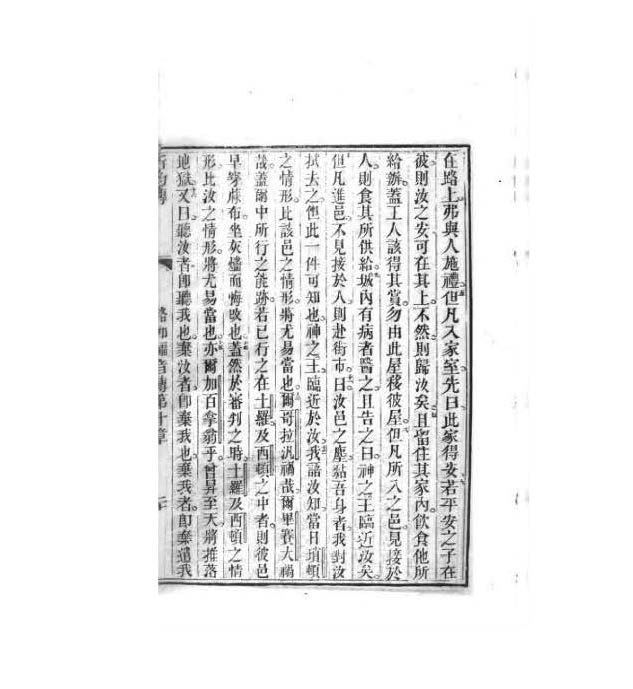 在路上弗與人施禮但凡入家室先曰此家得安若平安之子在
彼則汝之安可在其上不然則歸汝矣且留住其家內飲食他所
給辦蓋工人該得其賞勿由此屋移彼屋但凡所入之邑見接於
人則食其所供給城內有病者醫之且告之曰神之王臨近汝矣
但凡進邑不見接於人則赴街市曰汝邑之塵黏吾身者我對汝
拭去之但此一件可知也神之王臨近於汝我語汝知當日瑣頓
之情形比該邑之情形將尤易當也爾哥拉汛禍哉爾畢賽大禍
哉蓋爾中所行之能跡若已行之在土羅及西頓之中者則彼邑
早穿蔴布坐灰爐而悔改也蓋然於審判之時土羅及西頓之情
形比汝之情形將尤易當也亦爾加百拿翁乎曾昇至天將推落
地獄又曰聽汝者即聽我也棄汝者即棄我也棄我者即棄遣我
者傳第十章